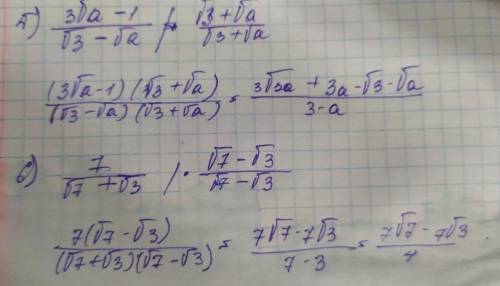 б) (3√a - 1)/(√3 - √a) | · (√3 + √a)/(√3 + √a)
((3√a - 1)(√3 + √a))/((√3 - √a)(√3 + √a)) = (3√3a + 3a - √3 - √a)/(3 - a)
в) 7/(√7 + √3) | · (√7 - √3)/(√7 - √3)
(7(√7 - √3))/((√7 + √3)(√7 - √3)) = (7√7 - 7√3)/(7 - 3) = (7√7 - 7√3)/4